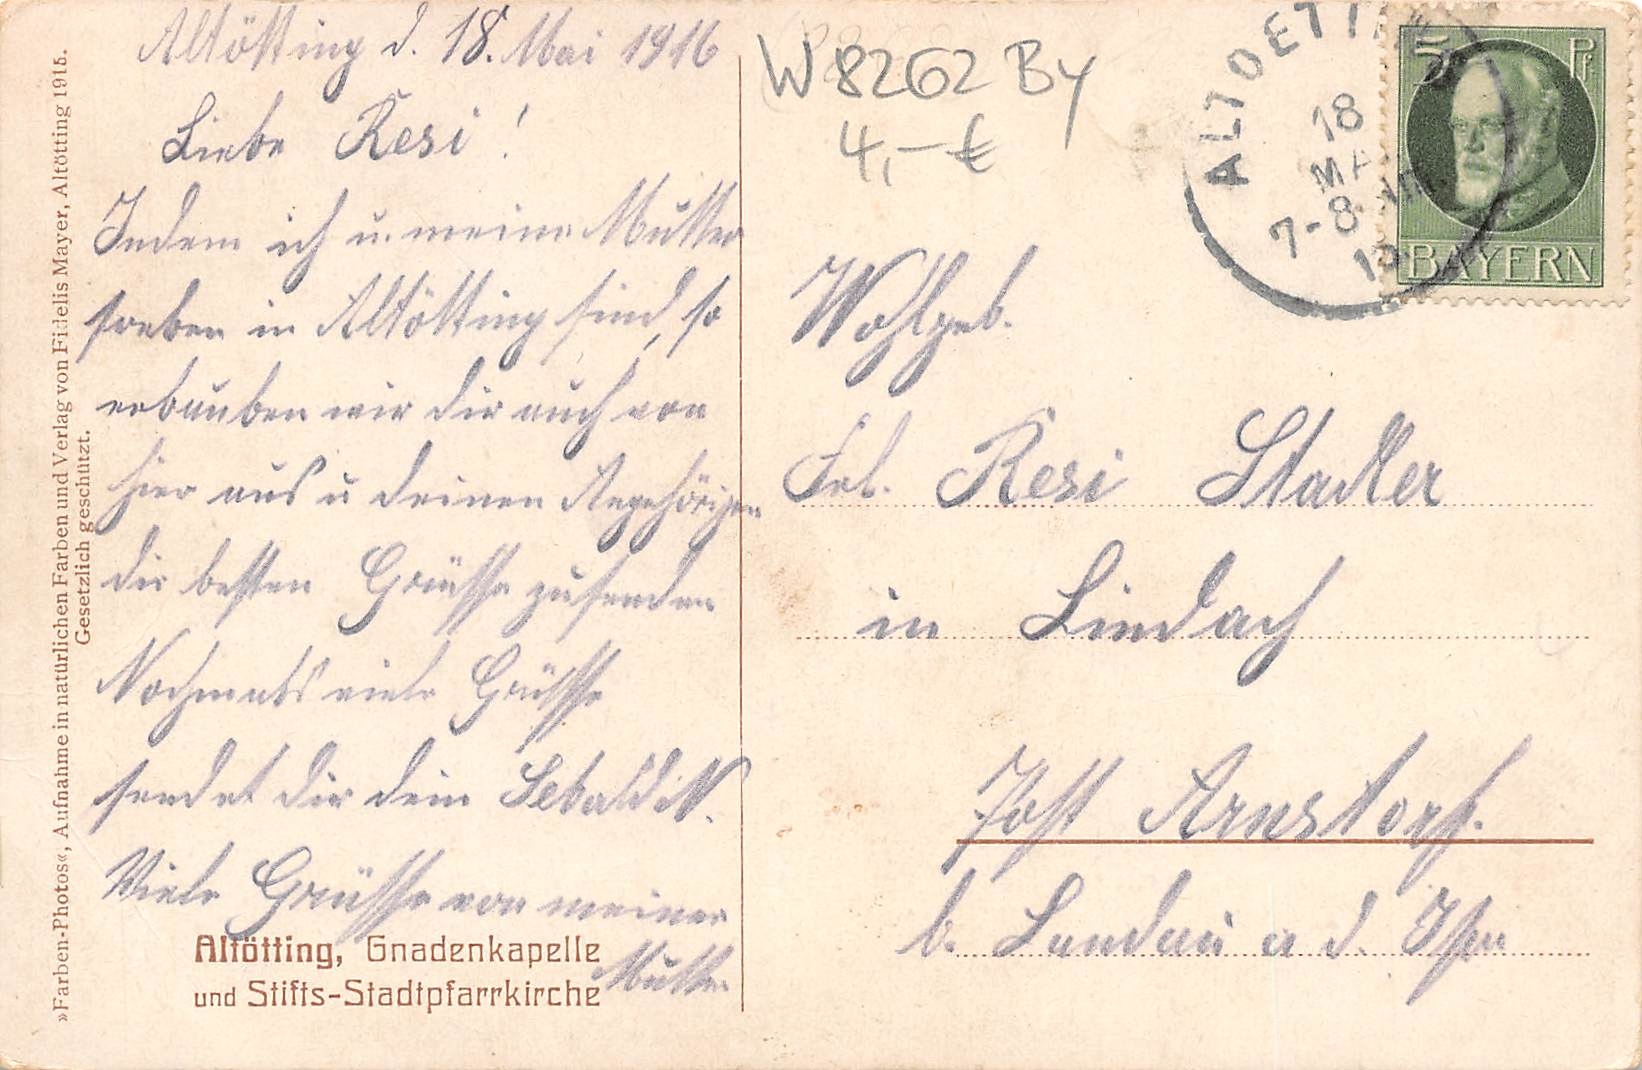 Altötting d. 18. Mai 1916
Liebe Resi!
Indem ich u. meine Mutter
soeben in Altötting sind, so
erlauben wir dir auch von
hier aus u deinen Angehörigen
die besten Grüsse zusenden
Nochmals viele Grüsse
sendet dir dein Sebald N.
Viele Grüsse von meiner
Mutter
Altötting, Gnadenkapelle
und Stifts-Stadtpfarrkirche
»Farben-Photos«, Aufnahme in natürlichen Farben und Verlag von Fidelis Mayer, Altötting 1915.
Gesetzlich geschützt.
W 8262 By
4,- €
ALTOETTING
18
MA
7-8
5 Pf
BAYERN
Wohlgeb.
Frl. Resi Stadler
in Lindach
Post Arnstorf.
b. Landau a d. Isar